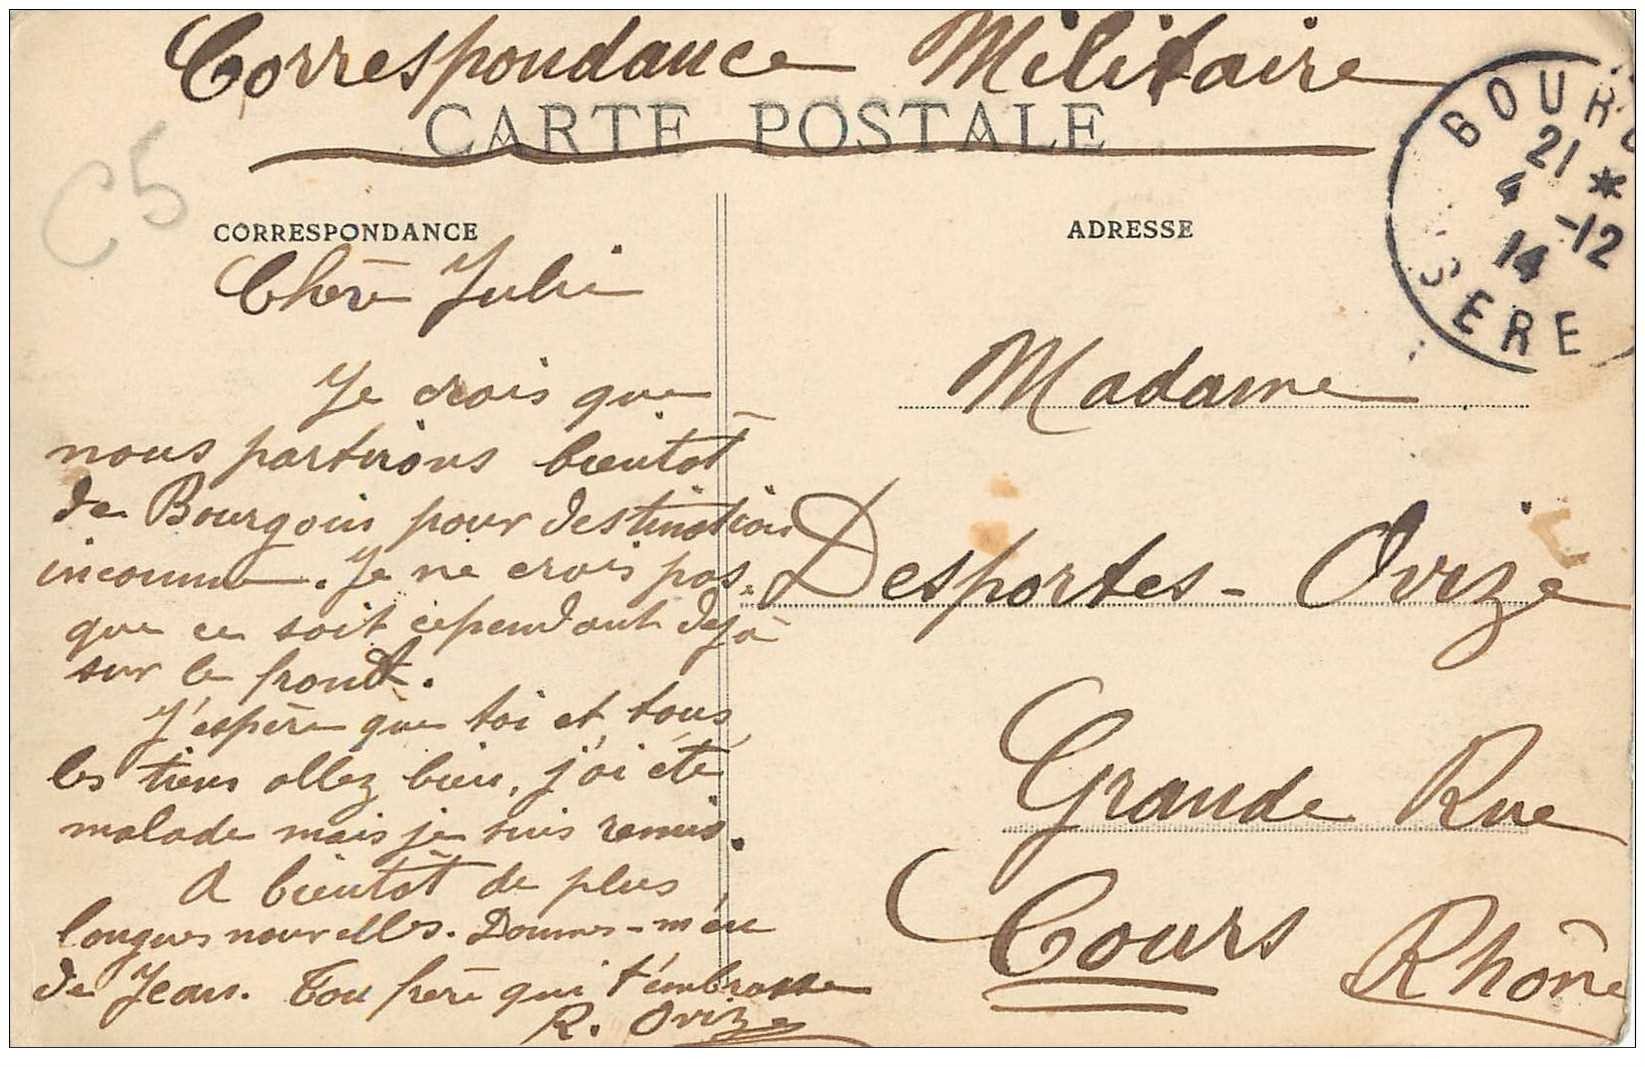 Correspondance Militaire
CARTE POSTALE
C5
CORRESPONDANCE
Chère Julie
Je crois que
nous partirons bientôt
de Bourgoin pour destination
inconnue. Je ne crois pas
que ce soit cependant déjà
sur le front.
J'espère que toi et tous
les tiens allez bien, j'ai été
malade mais je suis remis.
A bientôt de plus
longues nouvelles. Donnes-m'en
de Jean. Ton frère qui t'embrasse
R. Ovize
ADRESSE
BOURG
21 *
4 -12
14
ISERE
Madame
Desportes-Ovize
Grande Rue
Cours Rhône